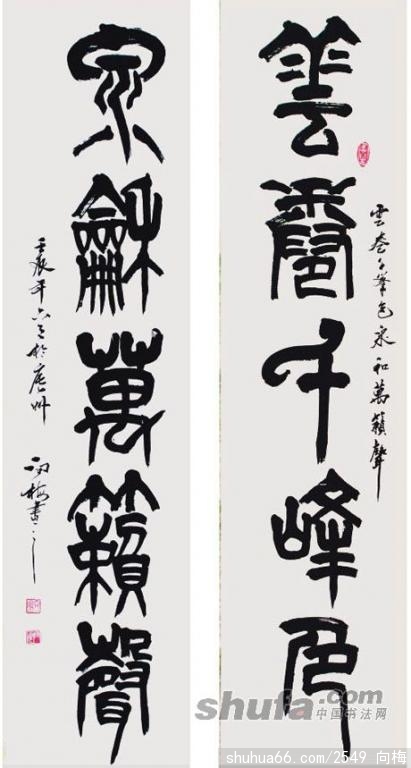 雲疊千峰色
雲叠千峯色泉和萬籟聲
泉龢萬籟聲
壬辰年六於廣州
向梅書
shufa.com
中国书法网
shuhua66.com/2549 向梅